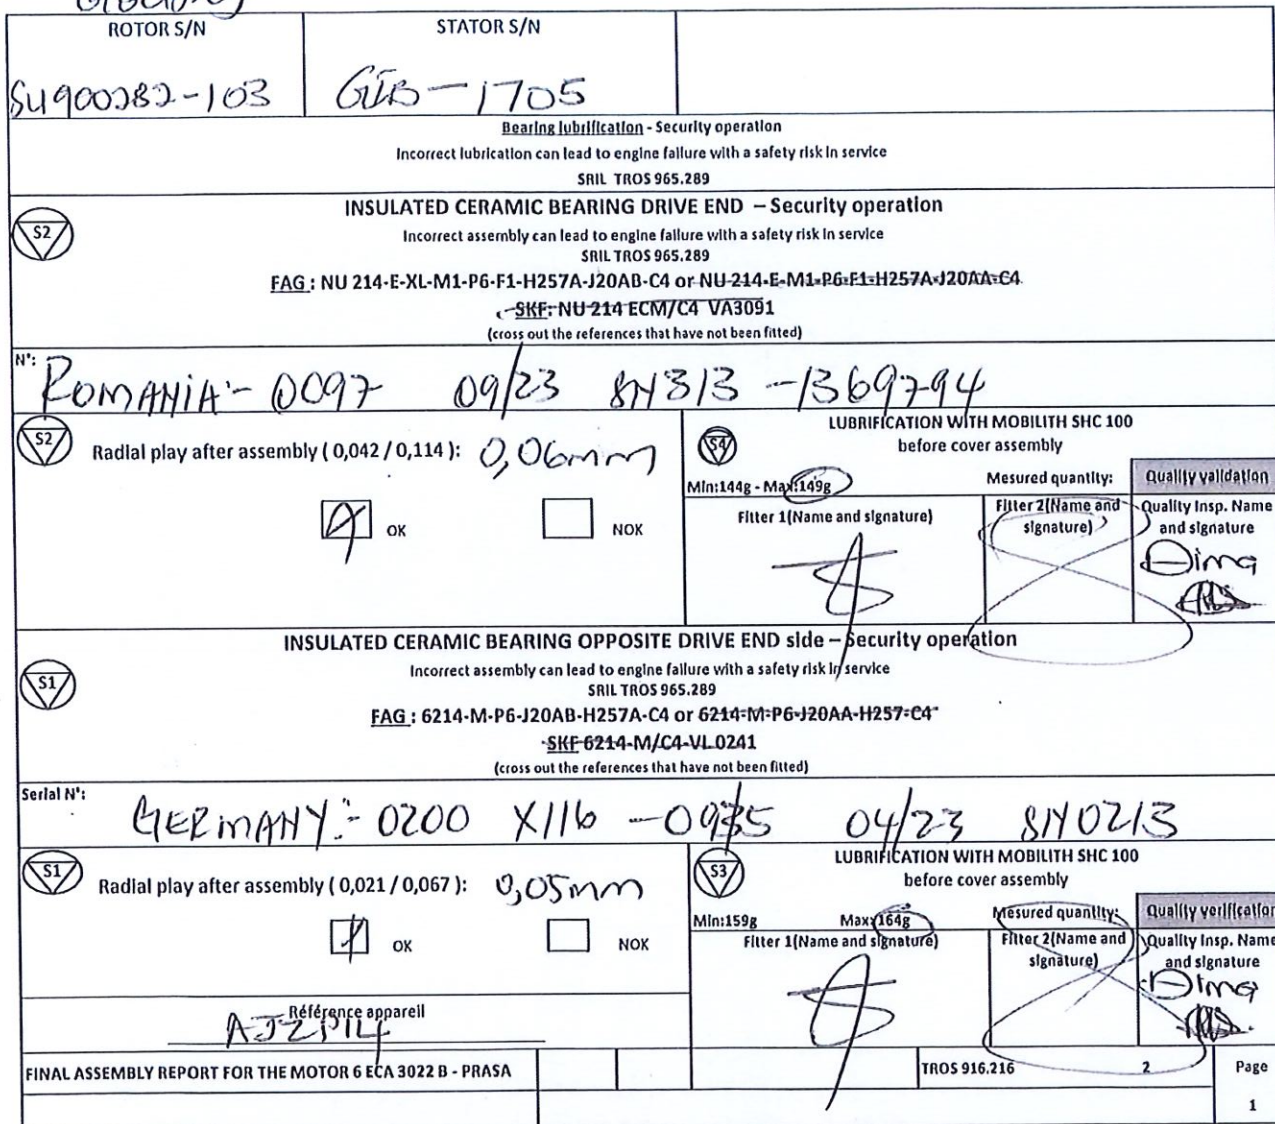 ROTOR S/N
STATOR S/N
SU900282-103
GIB-1705
Bearing lubrification - Security operation
Incorrect lubrication can lead to engine failure with a safety risk in service
SRIL TROS 965.289
S2
INSULATED CERAMIC BEARING DRIVE END – Security operation
Incorrect assembly can lead to engine failure with a safety risk in service
SRIL TROS 965.289
FAG : NU 214-E-XL-M1-P6-F1-H257A-J20AB-C4 or NU 214-E-M1-P6-F1-H257A-J20AA-C4
SKF: NU 214 ECM/C4 VA3091
(cross out the references that have not been fitted)
N°: ROMANIA:- 0097 09/23 SN313 -1369794
S2
Radial play after assembly ( 0,042 / 0,114 ): 0,06mm
OK
NOK
S4
LUBRIFICATION WITH MOBILITH SHC 100
before cover assembly
Min:144g - Max:149g
Mesured quantity:
Quality validation
Fitter 1(Name and signature)
Fitter 2(Name and signature)
Quality Insp. Name and signature
Dima
INSULATED CERAMIC BEARING OPPOSITE DRIVE END side – Security operation
S1
Incorrect assembly can lead to engine failure with a safety risk in service
SRIL TROS 965.289
FAG : 6214-M-P6-J20AB-H257A-C4 or 6214-M-P6-J20AA-H257-C4
SKF 6214-M/C4-VL0241
(cross out the references that have not been fitted)
Serial N°: GERMANY:- 0200 X116 -0935 04/23 SN0213
S1
Radial play after assembly ( 0,021 / 0,067 ): 0,05mm
OK
NOK
S3
LUBRIFICATION WITH MOBILITH SHC 100
before cover assembly
Min:159g Max:164g
Mesured quantity:
Quality verification
Fitter 1(Name and signature)
Fitter 2(Name and signature)
Quality Insp. Name and signature
Dima
Référence appareil
AJZP14
FINAL ASSEMBLY REPORT FOR THE MOTOR 6 ECA 3022 B - PRASA
TROS 916.216
2
Page
1